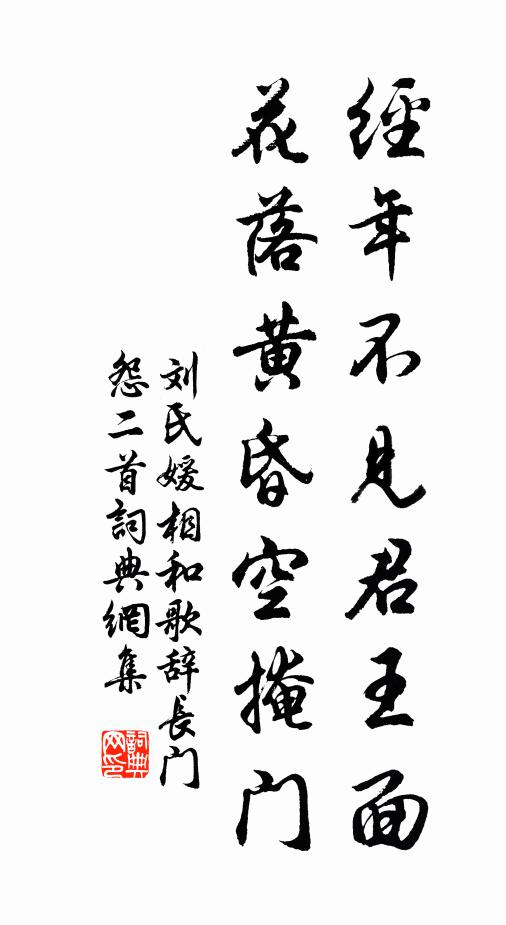 經年不見君王面
花落黄昏空掩门
刘氏媛相和歌辞長门
怨二首詞典網集
詞典
网印